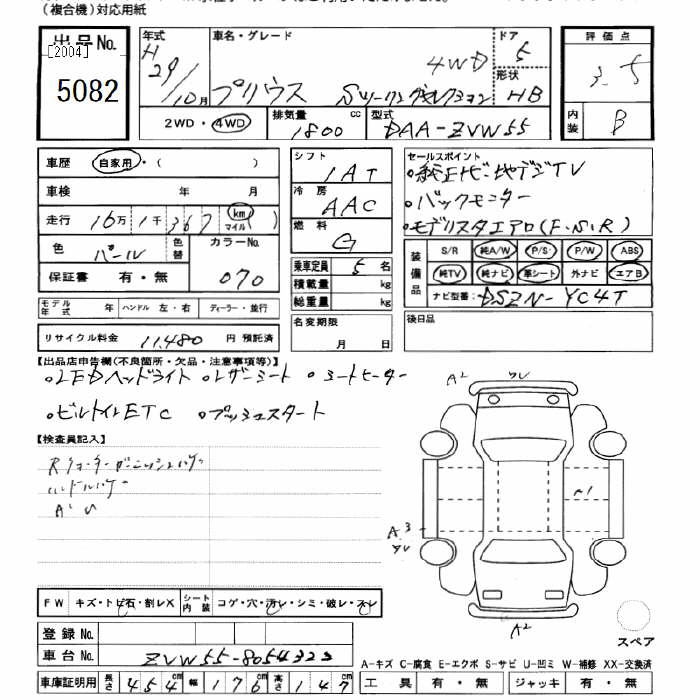 (複合機)対応用紙
出品No.
[2004]
5082
年式 H 29/10月
車名・グレード
プリウス Sツーリングセレクション
4WD
ドア 5
形状 HB
評価点
3.5
内装 B
2WD・4WD
排気量 1800 cc
型式 DAA-ZVW55
車歴 自家用・( )
車検 年 月
走行 16万1千367 km マイル
色 パール 色替
カラーNo. 070
保証書 有・無
モデル年式 年 ハンドル 左・右 ディーラー・並行
リサイクル料金 11,480 円 預託済
シフト 1AT
冷房 AAC
燃料 G
乗車定員 5 名
積載量 kg
総重量 kg
名変期限
月 日
セールスポイント
・純正ナビ・地デジTV
・バックモニター
・モデリスタエアロ(F.S.R)
装備品
S/R 純A/W P/S P/W ABS
純TV 純ナビ 革シート 外ナビ エアB
ナビ型番: DSZN-YC4T
後日品
【出品店申告欄(不良箇所・欠品・注意事項等)】
・LEDヘッドライト ・レザーシート ・シートヒーター
・ビルトインETC ・プッシュスタート
【検査員記入】
Rクォーターガーニッシュハゲ
ハンドルハゲ
A² U
A²
A³
A²
FW キズ・トビ石・割レX
シート内装 コゲ・穴・汚レ・シミ・破レ・スレ
登録No.
車台No. ZVW55-8054323
スペア
A-キズ C-腐食 E-エクボ S-サビ U-凹ミ W-補修 XX-交換済
車庫証明用 長さ 454 cm 幅 176 cm 高さ 147 cm
工具 有・無 ジャッキ 有・無